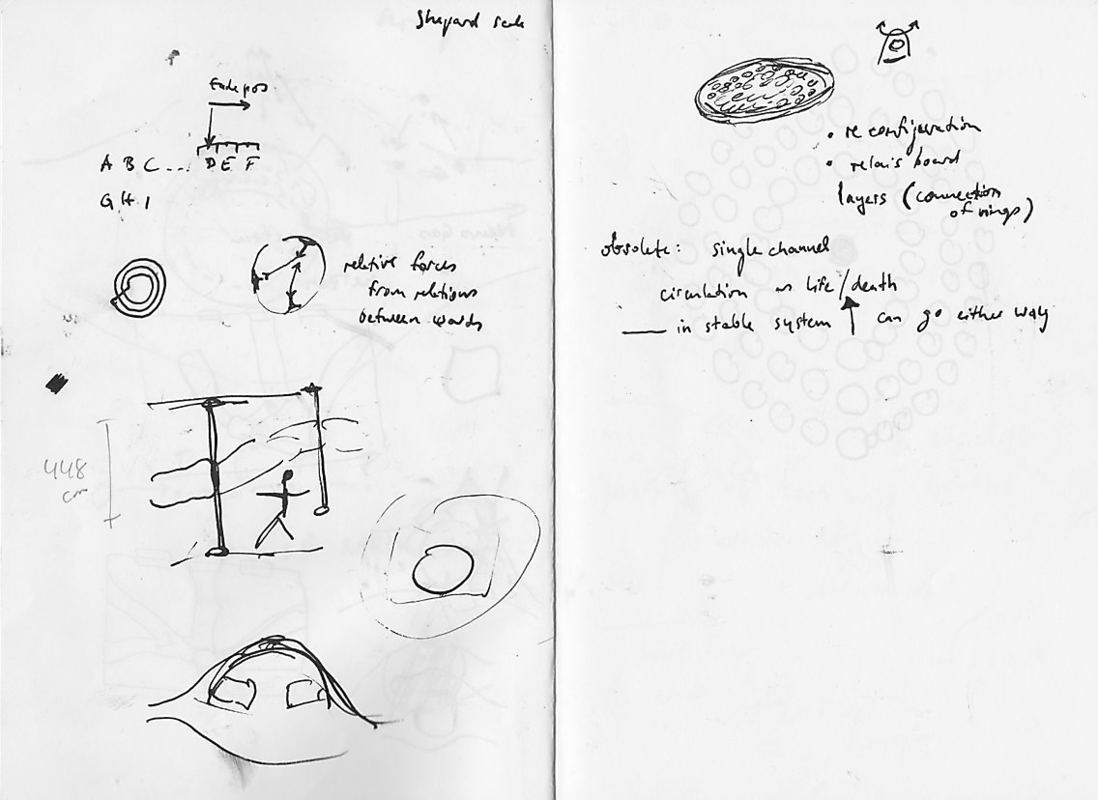 Shepard scale
Endepos
A B C .... D E F
G H I
relative forces
from relations
between words
448
cm
• reconfiguration
• relais board
layers (connection
of rings)
obsolete: single channel
circulation as life/death
— in stable system ↑ can go either way